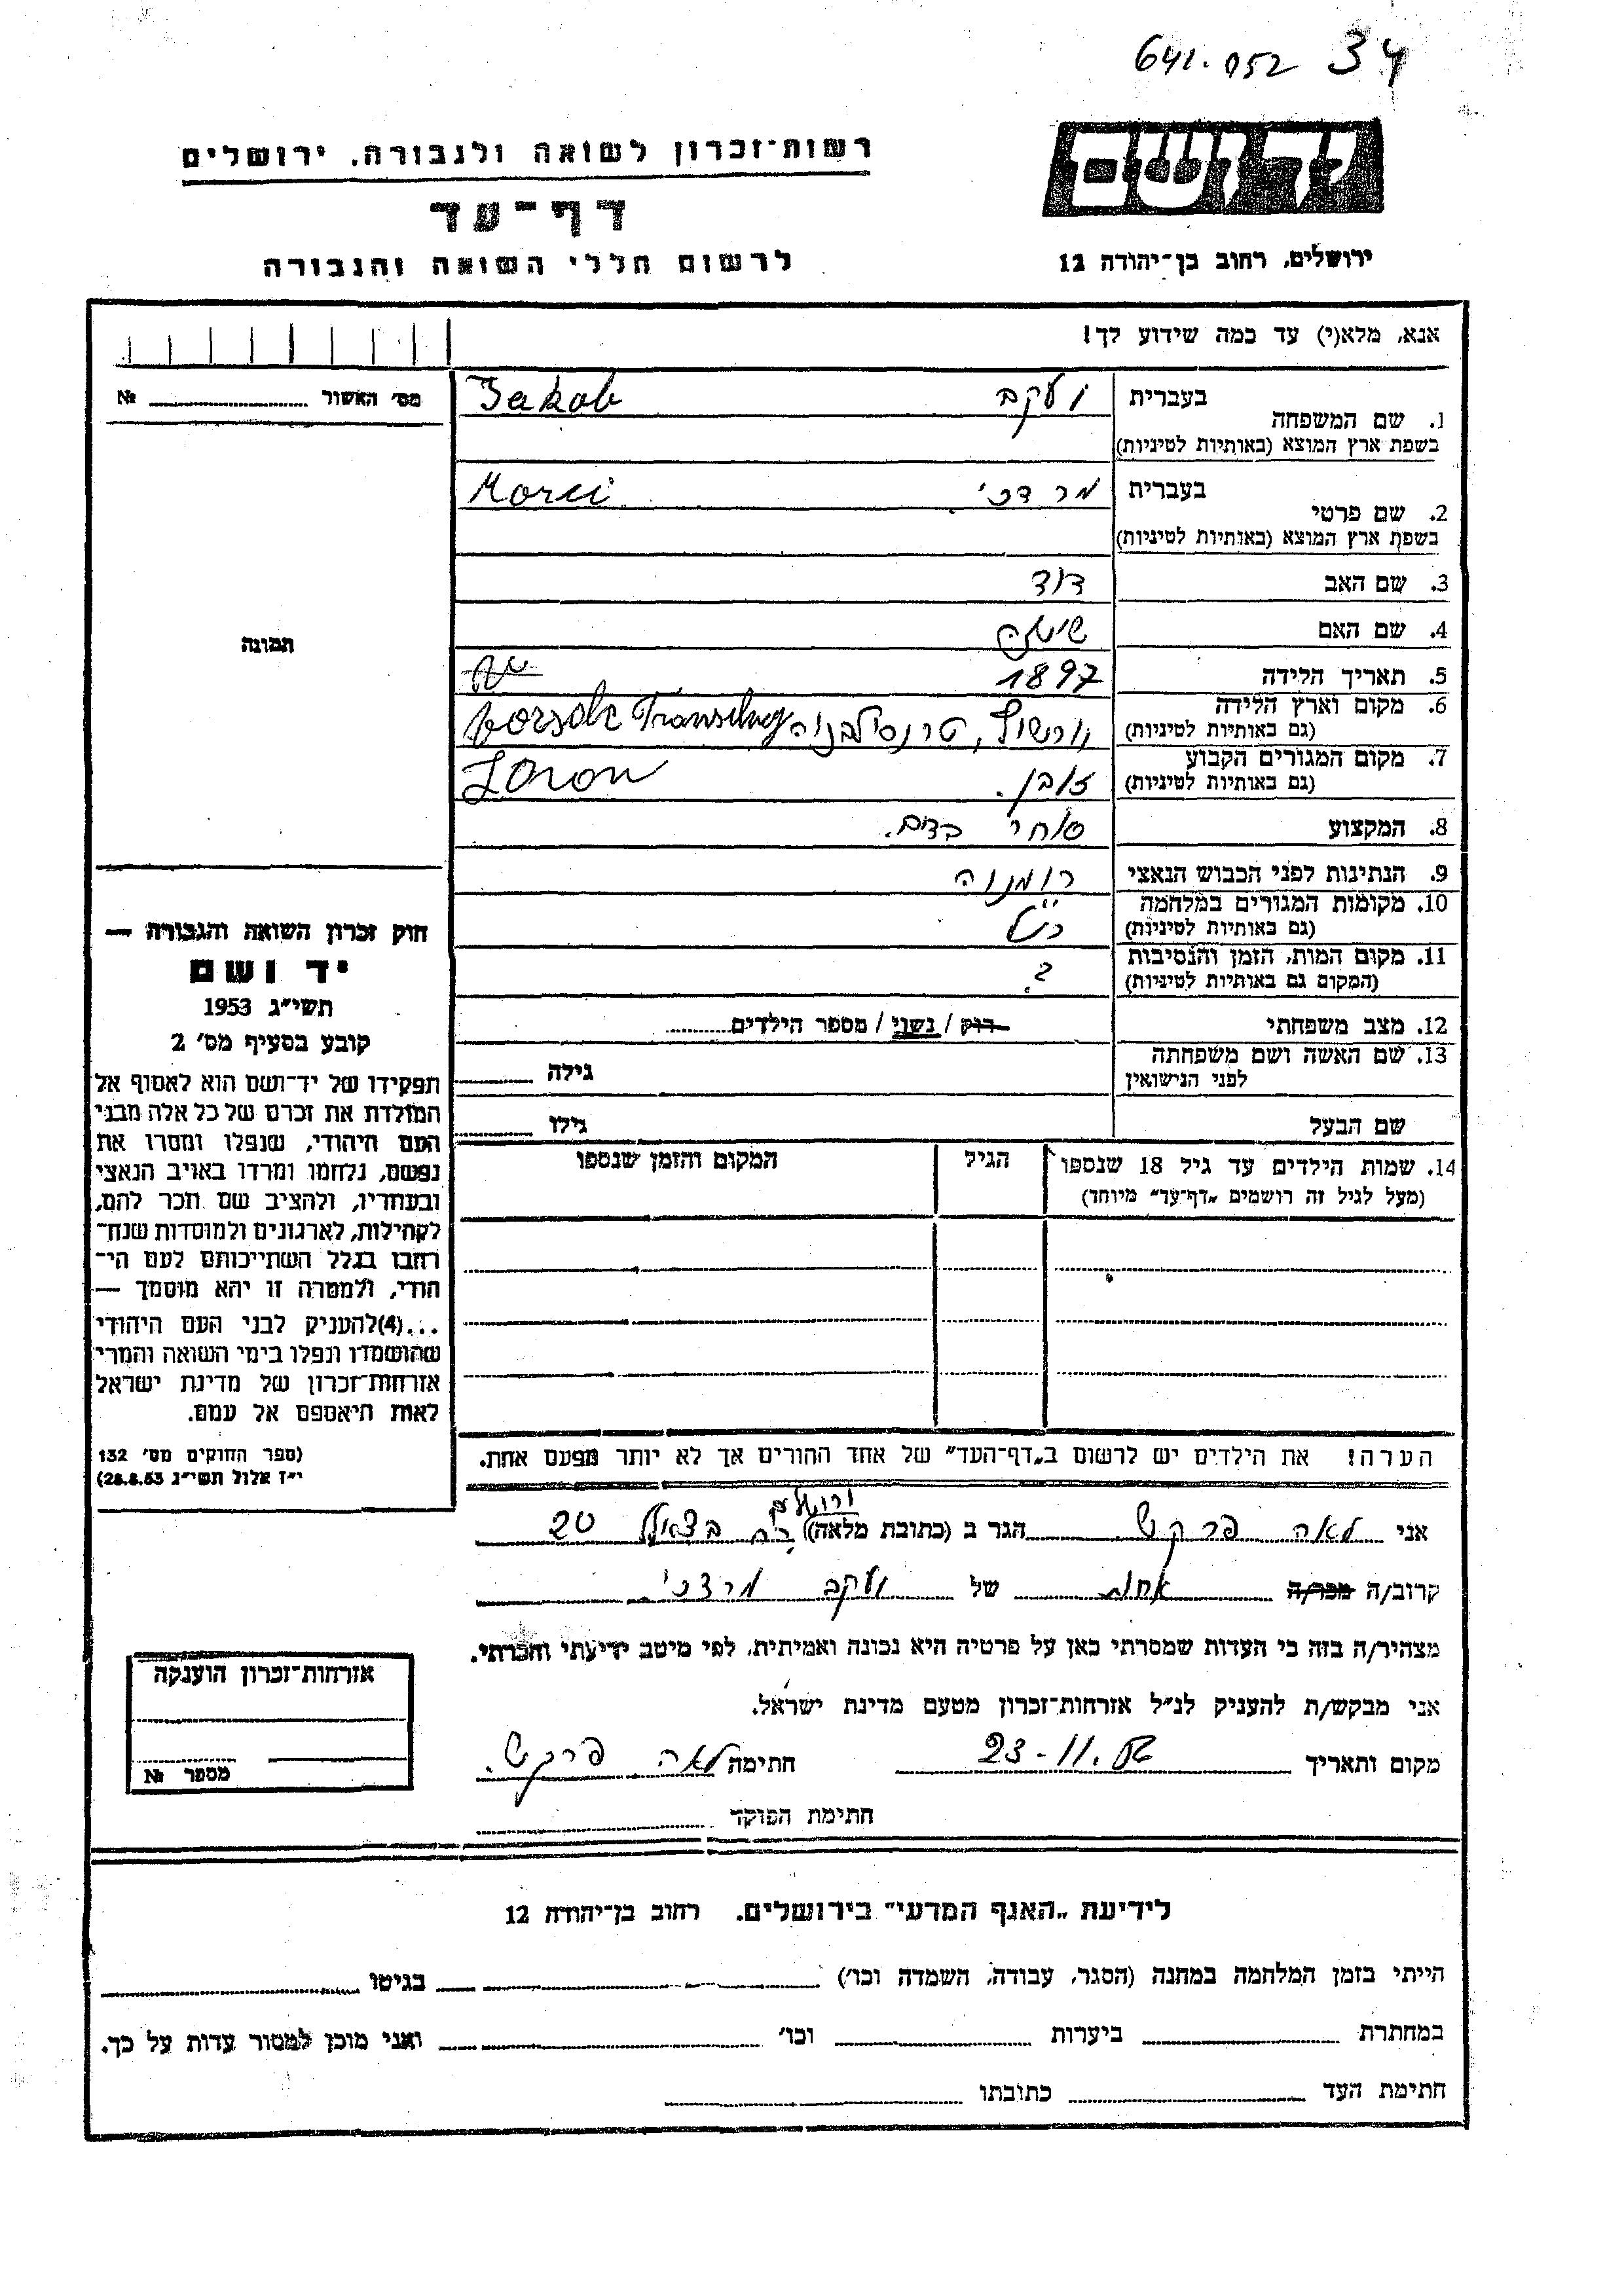 641.052 34
יד ושם
ירושלים, רחוב בן־יהודה 12
רשות־זכרון לשואה ולגבורה, ירושלים
דף־עד
לרשום חללי השואה והגבורה
אנא, מלא(י) עד כמה שידוע לך!
1. שם המשפחה
בעברית יעקב Jakob
בשפת ארץ המוצא (באותיות לטיניות)
2. שם פרטי
בעברית מרדכי Morci
בשפת ארץ המוצא (באותיות לטיניות)
3. שם האב דוד
4. שם האם
5. תאריך הלידה 1897
6. מקום וארץ הלידה
(גם באותיות לטיניות) טרנסילבניה
7. מקום המגורים הקבוע
(גם באותיות לטיניות)
8. המקצוע סוחר בדים.
9. הנתינות לפני הכבוש הנאצי רומניה
10. מקומות המגורים במלחמה
(גם באותיות לטינית) כנ״ל
11. מקום המות, הזמן והנסיבות
(המקום גם באותיות לטיניות) ?
12. מצב משפחתי רוק / נשוי / מספר הילדים
13. שם האשה ושם משפחתה
לפני הנישואין גילה
שם הבעל גילו
14. שמות הילדים עד גיל 18 שנספו
(מעל לגיל זה רושמים „דף־עד״ מיוחד)
הגיל
המקום והזמן שנספו
מס׳ האשור №
תמונה
חוק זכרון השואה והגבורה —
יד ושם
תשי״ג 1953
קובע בסעיף מס׳ 2
תפקידו של יד־ושם הוא לאסוף אל
המולדת את זכרם של כל אלה מבני
העם היהודי, שנפלו ומסרו את
נפשם, נלחמו ומרדו באויב הנאצי
ובעוזריו, ולהציב שם וזכר להם,
לקהילות, לארגונים ולמוסדות שנח־
רבו בגלל השתייכותם לעם הי־
הודי, ולמטרה זו יהא מוסמך —
...(4) להעניק לבני העם היהודי
שהושמדו ונפלו בימי השואה והמרי
אזרחות־זכרון של מדינת ישראל
לאות היאספם אל עמם.
(ספר החוקים מס׳ 132
י״ז אלול תשי״ג 28.8.53)
הערה! את הילדים יש לרשום ב„דף־העד״ של אחד ההורים אך לא יותר מפעם אחת.
אני לאה פרקש הגר ב (כתובת מלאה) ירושלים רח׳ בצלאל 20
קרוב/ה מכר/ה אחות של יעקב מרדכי
מצהיר/ה בזה כי העדות שמסרתי כאן על פרטיה היא נכונה ואמיתית, לפי מיטב ידיעתי והכרתי.
אני מבקש/ת להעניק לנ״ל אזרחות־זכרון מטעם מדינת ישראל.
מקום ותאריך 23-11. חתימה לאה פרקש.
חתימת הפוקד
אזרחות־זכרון הוענקה
מספר №
לידיעת „האגף המדעי״ בירושלים. רחוב בן־יהודה 12
הייתי בזמן המלחמה במחנה (הסגר, עבודה, השמדה וכו׳) בגיטו
במחתרת ביערות וכו׳ ואני מוכן למסור עדות על כך.
חתימת העד כתובתו